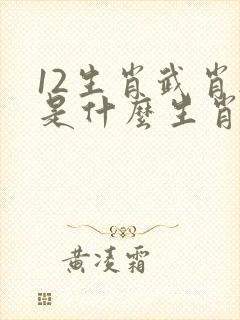 12生肖武肖
是什麽生肖
黄凌霜